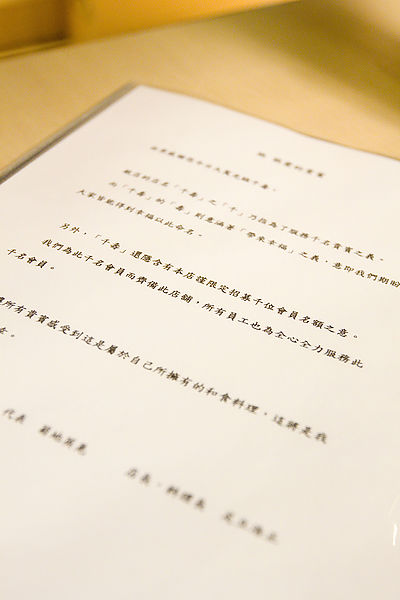 致 親愛的貴賓
飯店的店名「千壽」之「千」，乃指為了服務千名貴賓之義。
而「千壽」的「壽」則意涵著「帶來幸福」之義，意即我們期盼
大家皆能得到幸福以此命名。
另外，「千壽」還隱含有本店謹限定招募千位會員名額之意。
我們為此千名會員而齊備此店舖，所有員工也為全心全力服務此
千名會員。
所有貴賓感受到這是屬於自己所擁有的和食料理，這將是我
代表 菊地
店長．料理長